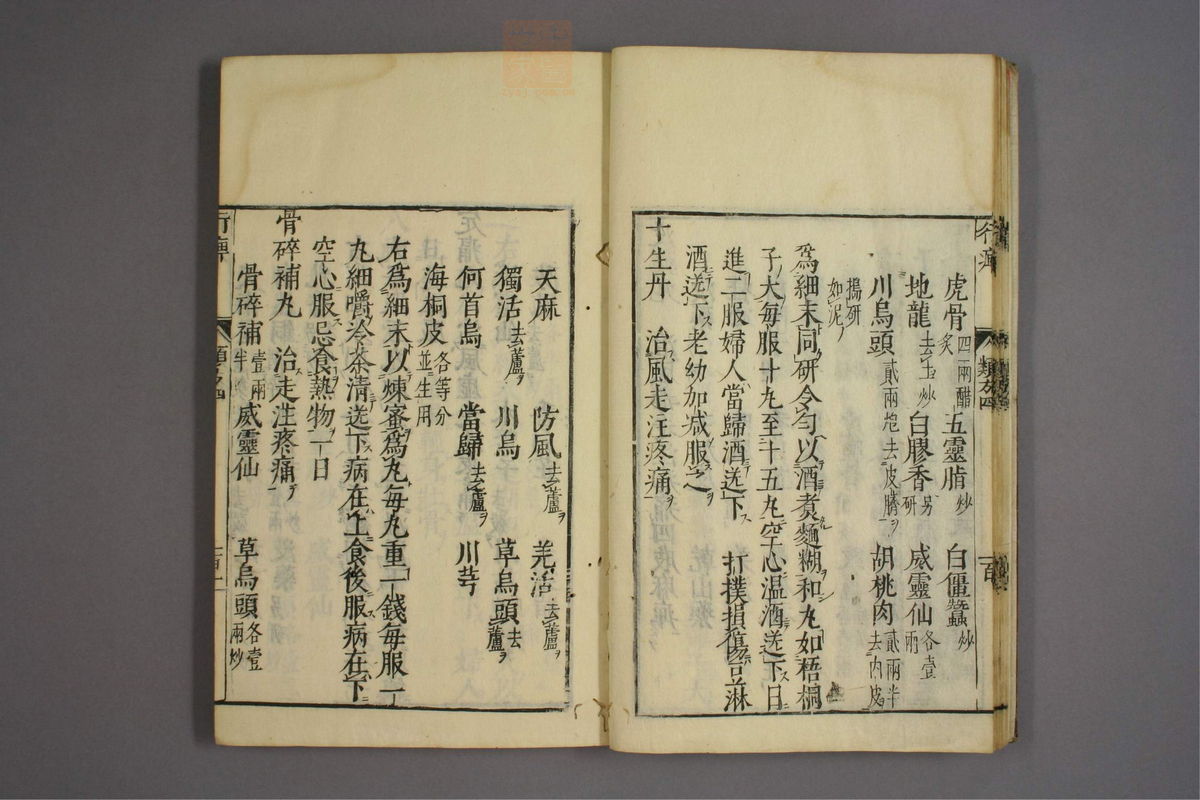 虎骨四兩醋炙 五靈脂炒 白僵蠶炒
地龍去土炒 白膠香另研 威靈仙各壹兩
川烏頭貳兩炮去皮臍ヲ 胡桃肉貳兩半去内皮
搗研如泥ノ
為細末同研令勻以酒煮麵糊和丸如梧桐
子大每服十九至十五丸空心溫酒送下日
進二服婦人當歸酒送下 打撲損傷荳淋
酒送下老幼加减服之
十生丹 治風走注疼痛ヲ
天麻 防風去蘆ヲ 羌活去蘆ヲ
獨活去蘆ヲ 川烏 草烏頭去蘆ヲ
何首烏 當歸去蘆ヲ 川芎
海桐皮各等分並生用
右為細末以煉蜜為丸每丸重一錢每服一
丸細嚼冷茶清送下病在上食後服病在下
空心服忌食熱物一日
骨碎補丸 治走注疼痛ヲ
骨碎補壹兩半 威靈仙 草烏頭各壹兩炒